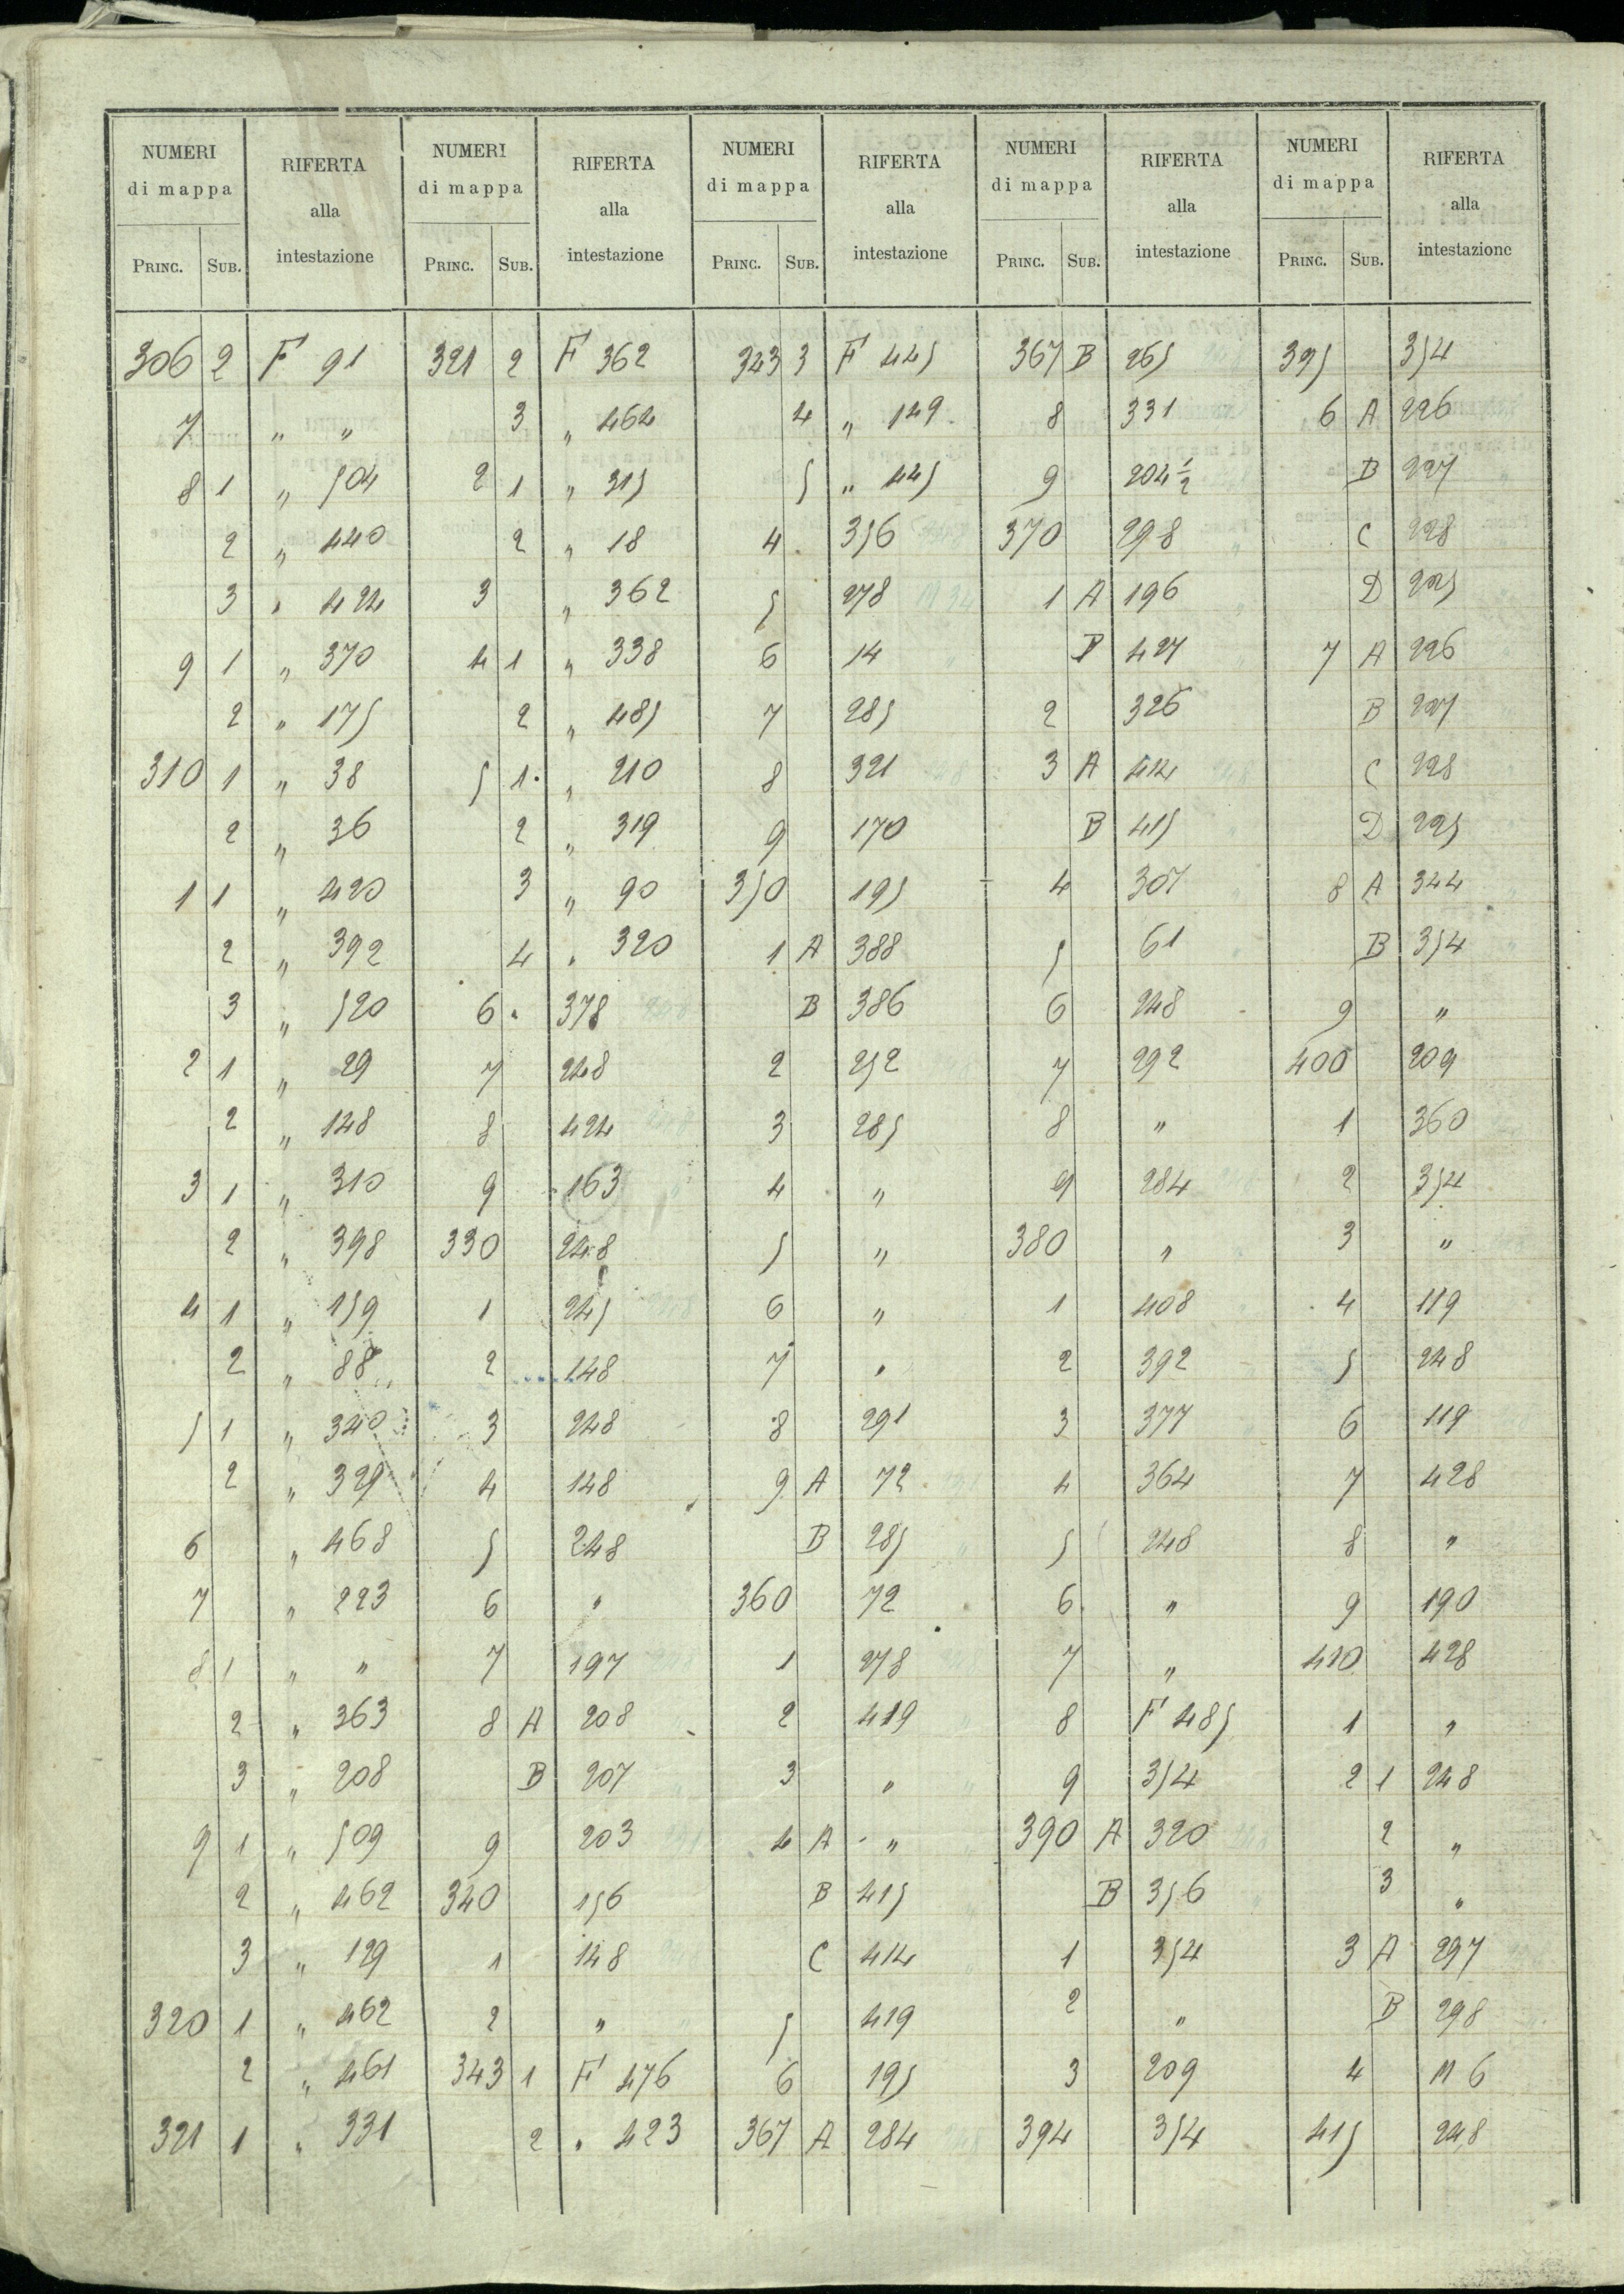 NUMERI di mappa RIFERTA alla intestazione NUMERI di mappa RIFERTA alla intestazione NUMERI di mappa RIFERTA alla intestazione NUMERI di mappa RIFERTA alla intestazione NUMERI di mappa RIFERTA alla intestazione
PRINC. SUB. PRINC. SUB. PRINC. SUB. PRINC. SUB. PRINC. SUB.
306 2 F 91 321 2 F 362 343 3 F 445 367 B 265 395 354
7 " " 3 " 464 4 " 149 8 331 6 A 226
8 1 " 504 2 1 " 315 5 " 445 9 204 1/2 B 227
2 " 440 2 " 18 4 356 370 298 C 228
3 " 424 3 " 362 5 278 1 A 196 D 225
9 1 " 370 4 1 " 338 6 14 B 427 7 A 226
2 " 175 2 " 485 7 285 2 326 B 227
310 1 " 38 5 1 " 210 8 321 3 A 414 C 228
2 " 36 2 " 319 9 170 B 415 D 225
1 1 " 420 3 " 90 350 195 4 307 8 A 344
2 " 392 4 " 320 1 A 388 5 61 B 354
3 " 520 6 378 B 386 6 248 9 "
2 1 " 29 7 248 2 252 7 292 400 209
2 " 148 8 424 3 285 8 " 1 360
3 1 " 310 9 163 4 " 9 284 2 354
2 " 398 330 248 5 " 380 " 3 "
4 1 " 159 1 245 6 " 1 408 4 119
2 " 88 2 148 7 " 2 392 5 248
5 1 " 340 3 248 8 291 3 377 6 119
2 " 329 4 148 9 A 72 4 364 7 428
6 " 468 5 248 B 285 5 248 8 "
7 " 223 6 " 360 72 6 " 9 190
8 1 " " 7 197 1 278 7 " 410 428
2 " 363 8 A 208 2 419 8 F 485 1 "
3 " 208 B 207 3 " 9 354 2 1 248
9 1 " 509 9 203 4 A " 390 A 320 2 "
2 " 462 340 156 B 415 B 356 3 "
3 " 129 1 148 C 414 1 354 3 A 297
320 1 " 462 2 " 5 419 2 " B 298
2 " 461 343 1 F 476 6 195 3 209 4 116
321 1 " 331 2 " 423 367 A 284 394 354 415 248